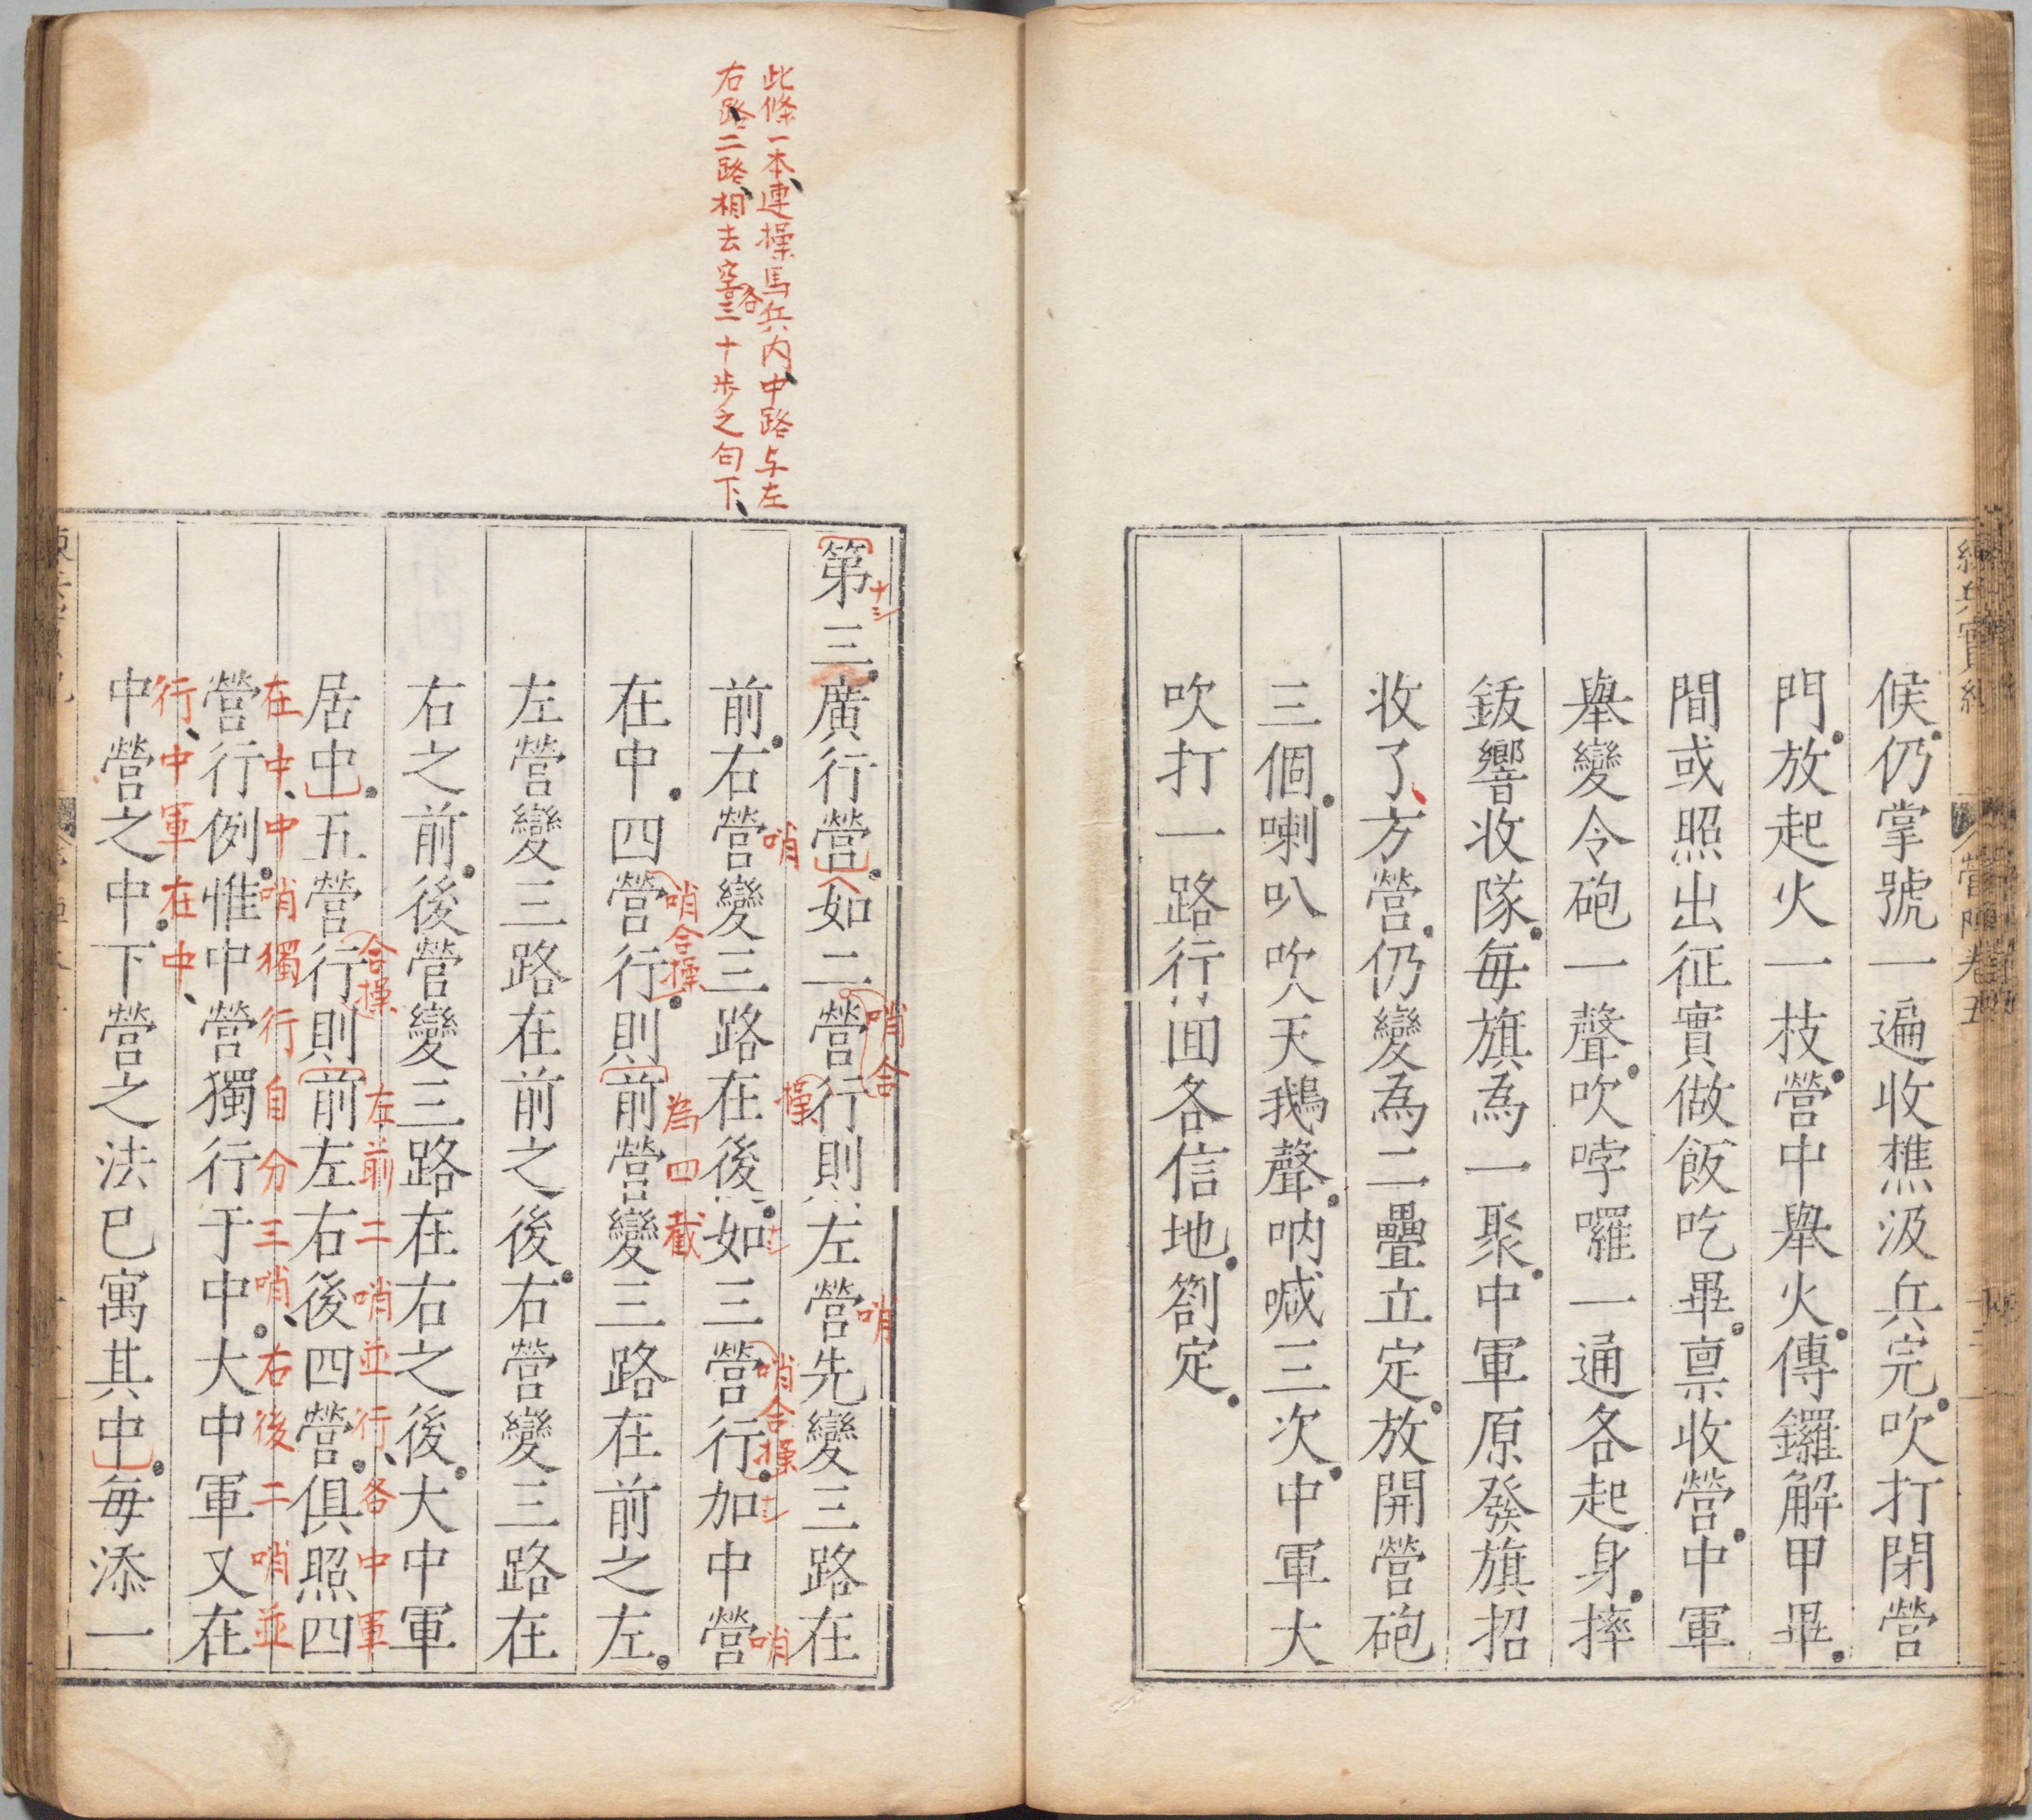 練兵實紀
營陣卷五
候仍掌號一遍收樵汲兵完吹打閉營
門放起火一枝營中舉火傳鑼解甲畢
間或照出征實做飯吃畢稟收營中軍
舉變令砲一聲吹哱囉一通各起身摔
鈸響收隊每旗為一聚中軍原發旗招
收了方營仍變為二疊立定放開營砲
三個喇叭吹天鵝聲吶喊三次中軍大
吹打一路行面各信地劄定
此條一本連操馬兵內中路与左
右路二路相去空各二十步之句下
第三廣行營如二營行則左營先變三路在
哨合
操
哨
前右營變三路在後如三營行加中營
哨
哨合操
哨
在中四營行則前營變三路在前之左
哨合操
為四截
左營變三路在前之後右營變三路在
右之前後營變三路在右之後大中軍
居中五營行則前左右後四營俱照四
合操
左前二哨並行各中軍
營行例惟中營獨行于中大中軍又在
在中中哨獨行自分三哨右後二哨並
中營之中下營之法已寓其中每添一
行中軍在中